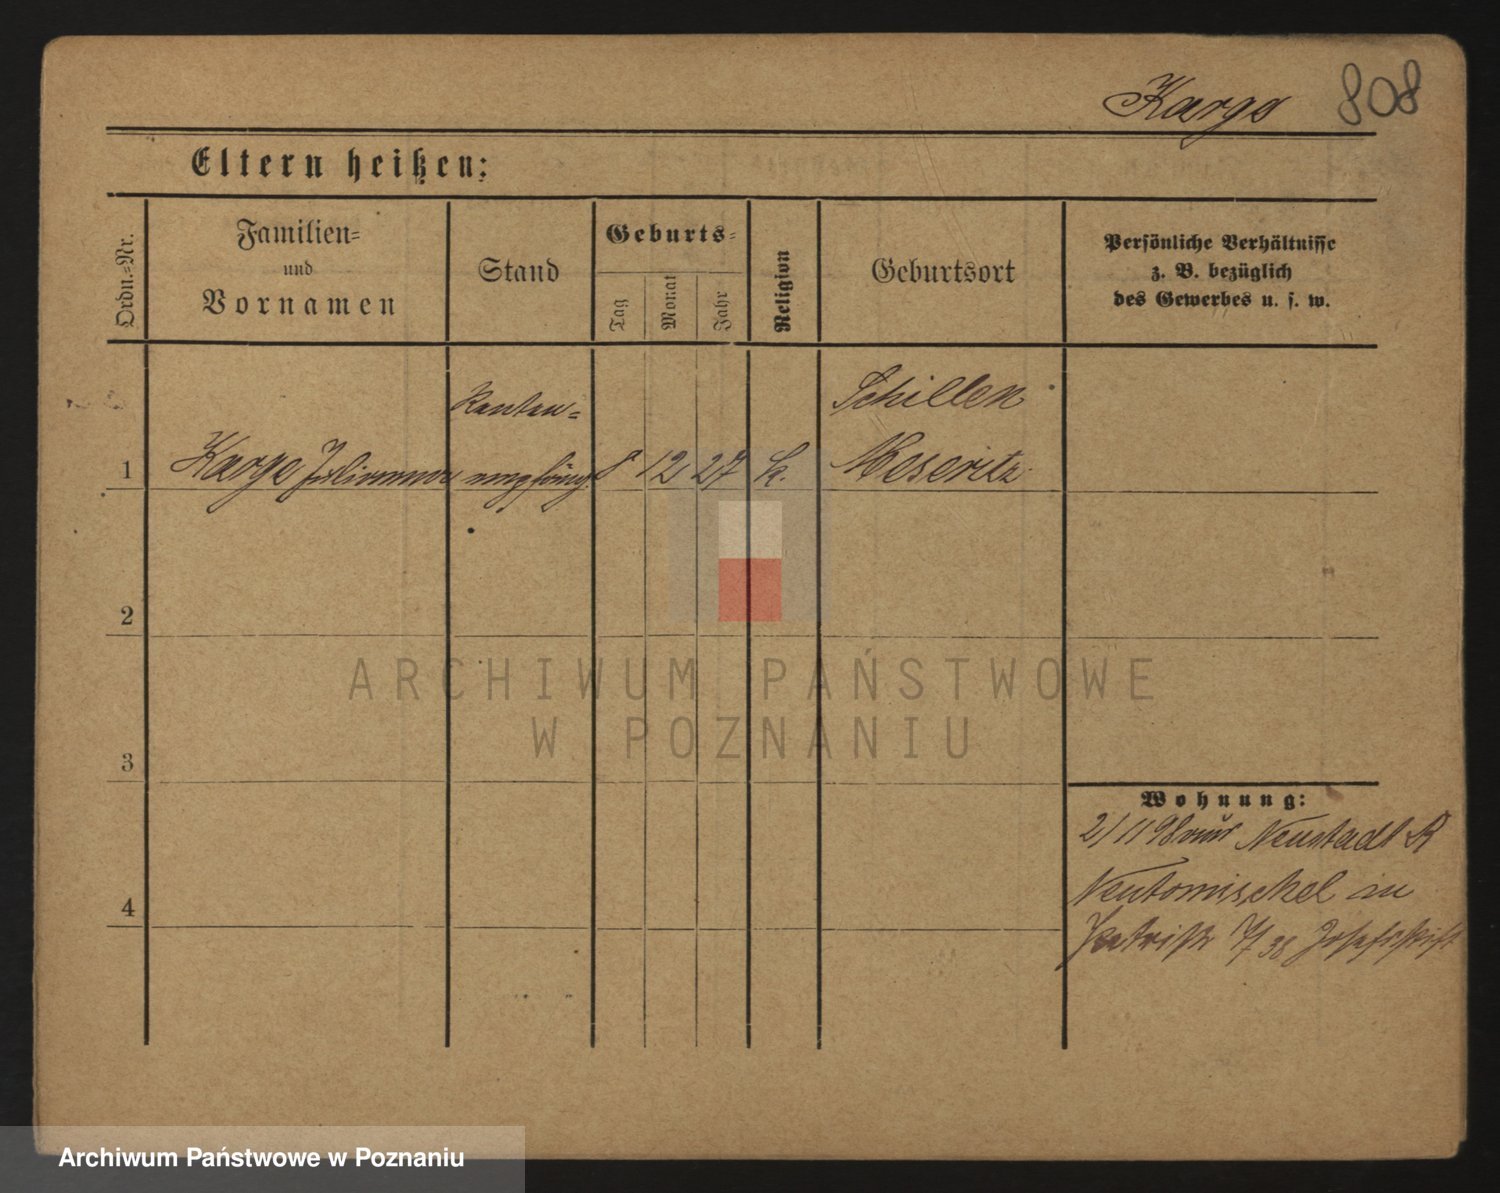 Karge 808
Eltern heißen:
Ordn.=Nr.
Familien=
und
Vornamen
Stand
Geburts=
Tag
Monat
Jahr
Religion
Geburtsort
Persönliche Verhältnisse
z. B. bezüglich
des Gewerbes u. s. w.
Renten=
Schillen
1 Karge empfäng. 8 12 27 k. Meseritz
2
3
4
Wohnung:
2/11 98 Neustadt R
Neutomischel
38 Josephstift
ARCHIWUM PAŃSTWOWE
W POZNANIU
Archiwum Państwowe w Poznaniu